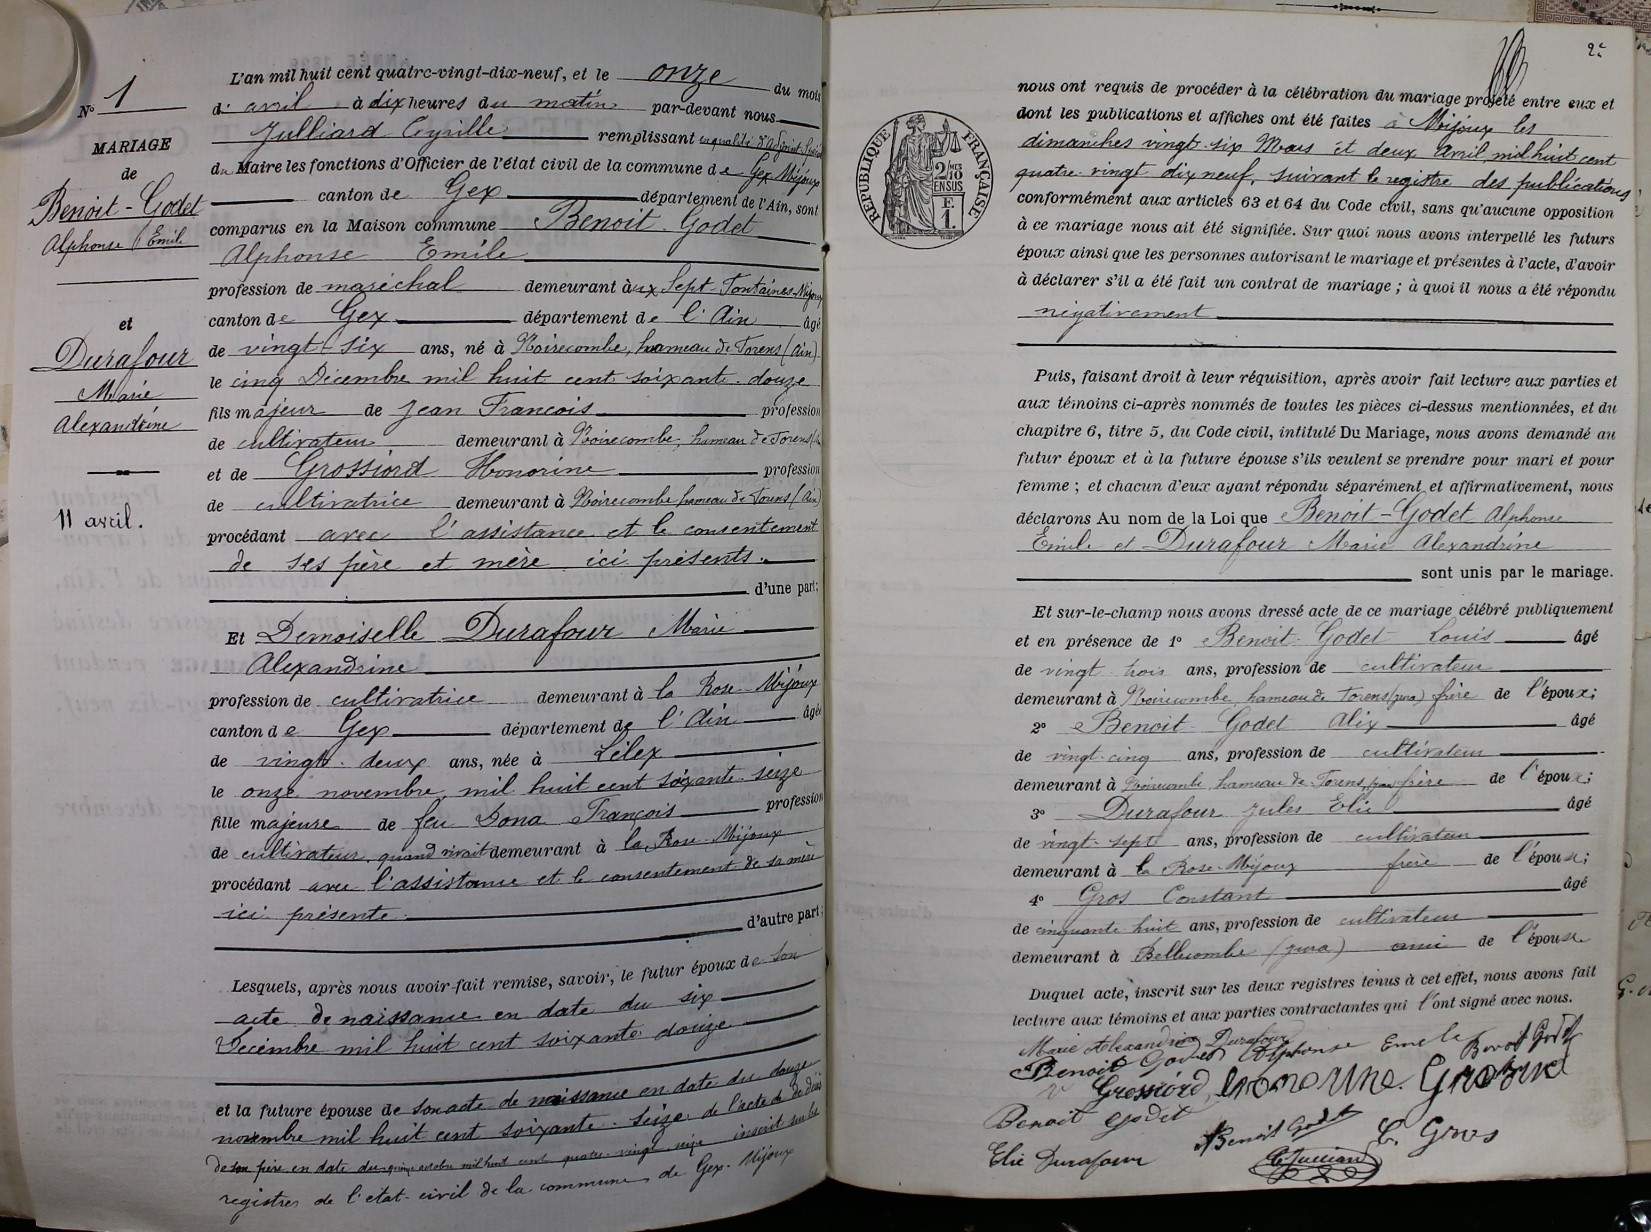 N° 1
MARIAGE
de
Benoit-Godet
Alphonse Emile
et
Durafour
Marie
Alexandrine
11 avril.
L'an mil huit cent quatre-vingt-dix-neuf, et le onze du mois
d' avril à dix heures du matin par-devant nous
Julliard Cyrille remplissant en qualité d'adjoint spécial
du Maire les fonctions d'Officier de l'état civil de la commune de Gex-Mijoux
canton de Gex département de l'Ain, sont
comparus en la Maison commune Benoit-Godet
Alphonse Emile
profession de maréchal demeurant aux Sept-Fontaines-Mijoux
canton de Gex département de l'Ain âgé
de vingt-six ans, né à Noirecombe, hameau de Forens (Ain)
le cinq Décembre mil huit cent soixante-douze
fils majeur de Jean François profession
de cultivateur demeurant à Noirecombe, hameau de Forens
et de Grossiord Honorine profession
de cultivatrice demeurant à Noirecombe hameau de Forens (Ain)
procédant avec l'assistance et le consentement
de ses père et mère ici présents.
d'une part;
Et Demoiselle Durafour Marie
Alexandrine
profession de cultivatrice demeurant à la Rose-Mijoux
canton de Gex département de l'Ain âgée
de vingt-deux ans, née à Lélex
le onze novembre mil huit cent soixante-seize
fille majeure de feu Dona François profession
de cultivateur, quand vivait demeurant à la Rose-Mijoux
procédant avec l'assistance et le consentement de sa mère
ici présente.
d'autre part;
Lesquels, après nous avoir fait remise, savoir, le futur époux de son
acte de naissance en date du six
Décembre mil huit cent soixante-douze
et la future épouse de son acte de naissance en date du douze
novembre mil huit cent soixante-seize de l'acte de décès
de son père en date du quinze octobre mil huit cent quatre-vingt inscrit sur les
registres de l'etat-civil de la commune de Gex-Mijoux
2e
RÉPUBLIQUE FRANÇAISE
2/10
EN SUS
F.
1.
nous ont requis de procéder à la célébration du mariage projeté entre eux et
dont les publications et affiches ont été faites à Mijoux les
dimanches vingt-six Mars et deux Avril mil huit cent
quatre-vingt-dix neuf, suivant le registre des publications
conformément aux articles 63 et 64 du Code civil, sans qu'aucune opposition
à ce mariage nous ait été signifiée. Sur quoi nous avons interpellé les futurs
époux ainsi que les personnes autorisant le mariage et présentes à l'acte, d'avoir
à déclarer s'il a été fait un contrat de mariage ; à quoi il nous a été répondu
négativement
Puis, faisant droit à leur réquisition, après avoir fait lecture aux parties et
aux témoins ci-après nommés de toutes les pièces ci-dessus mentionnées, et du
chapitre 6, titre 5, du Code civil, intitulé Du Mariage, nous avons demandé au
futur époux et à la future épouse s'ils veulent se prendre pour mari et pour
femme ; et chacun d'eux ayant répondu séparément et affirmativement, nous
déclarons Au nom de la Loi que Benoit-Godet Alphonse
Emile et Durafour Marie Alexandrine
sont unis par le mariage.
Et sur-le-champ nous avons dressé acte de ce mariage célébré publiquement
et en présence de 1° Benoit-Godet Louis âgé
de vingt trois ans, profession de cultivateur
demeurant à Noirecombe hameau de Forens frère de l'époux;
2° Benoit-Godet Alix âgé
de vingt-cinq ans, profession de cultivateur
demeurant à Noirecombe hameau de Forens frère de l'époux;
3° Durafour Jules Elie âgé
de vingt-sept ans, profession de cultivateur
demeurant à la Rose-Mijoux frère de l'épouse;
4° Gros Constant âgé
de cinquante huit ans, profession de cultivateur
demeurant à Bellecombe (Jura) ami de l'épouse
Duquel acte, inscrit sur les deux registres tenus à cet effet, nous avons fait
lecture aux témoins et aux parties contractantes qui l'ont signé avec nous.
Marie Alexandrine Durafour
Benoit Godet Alphonse Emile Benoit Godet
Grossiord Honorine
Benoit Godet Benoit Godet C. Gros
Elie Durafour C. Julliard